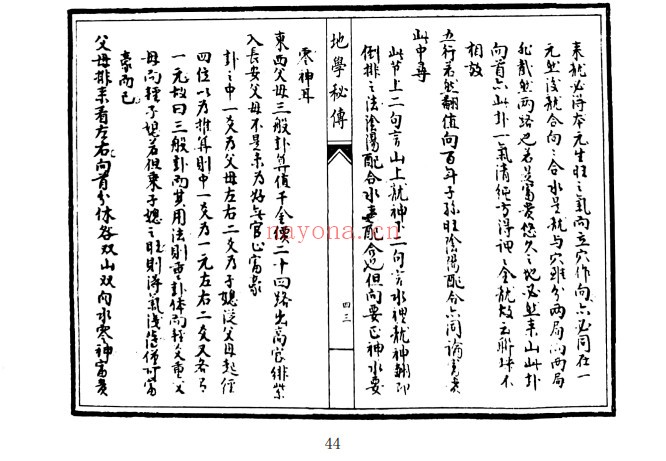 来龍必得本元生旺之氣向立穴作向亦必同在一
元然後龍合向之合水是龍与穴雖分兩局而兩局
非截然兩路也若是富貴悠久之地必然来山此卦
向首亦此卦一氣清純方得謂之全龍故云聯珠不
相放
五行若然翻值向百年子孫旺陰陽配合亦同論富貴
此中尋
此節上二句言山上龍神下二句言水裡龍神翻即
倒排之法陰陽配合水来配合也但向要正神水要
地學秘傳
四三
零神耳
東西父母三般卦算值千金價二十四路出高官緋紫
入長安父母不是未為好無官止富豪
卦之中一爻為父母左右二爻為子媳從父母起
四位以為推算則中一爻為一元左右二爻又各有
一元故曰三般卦而其用法則重卦体而輕爻重父
母而輕子媳若但乗子媳之旺則得氣淺僅可富
豪而已
父母排来看左右向首分休咎双山双向水零神富貴
nayona.cn
44